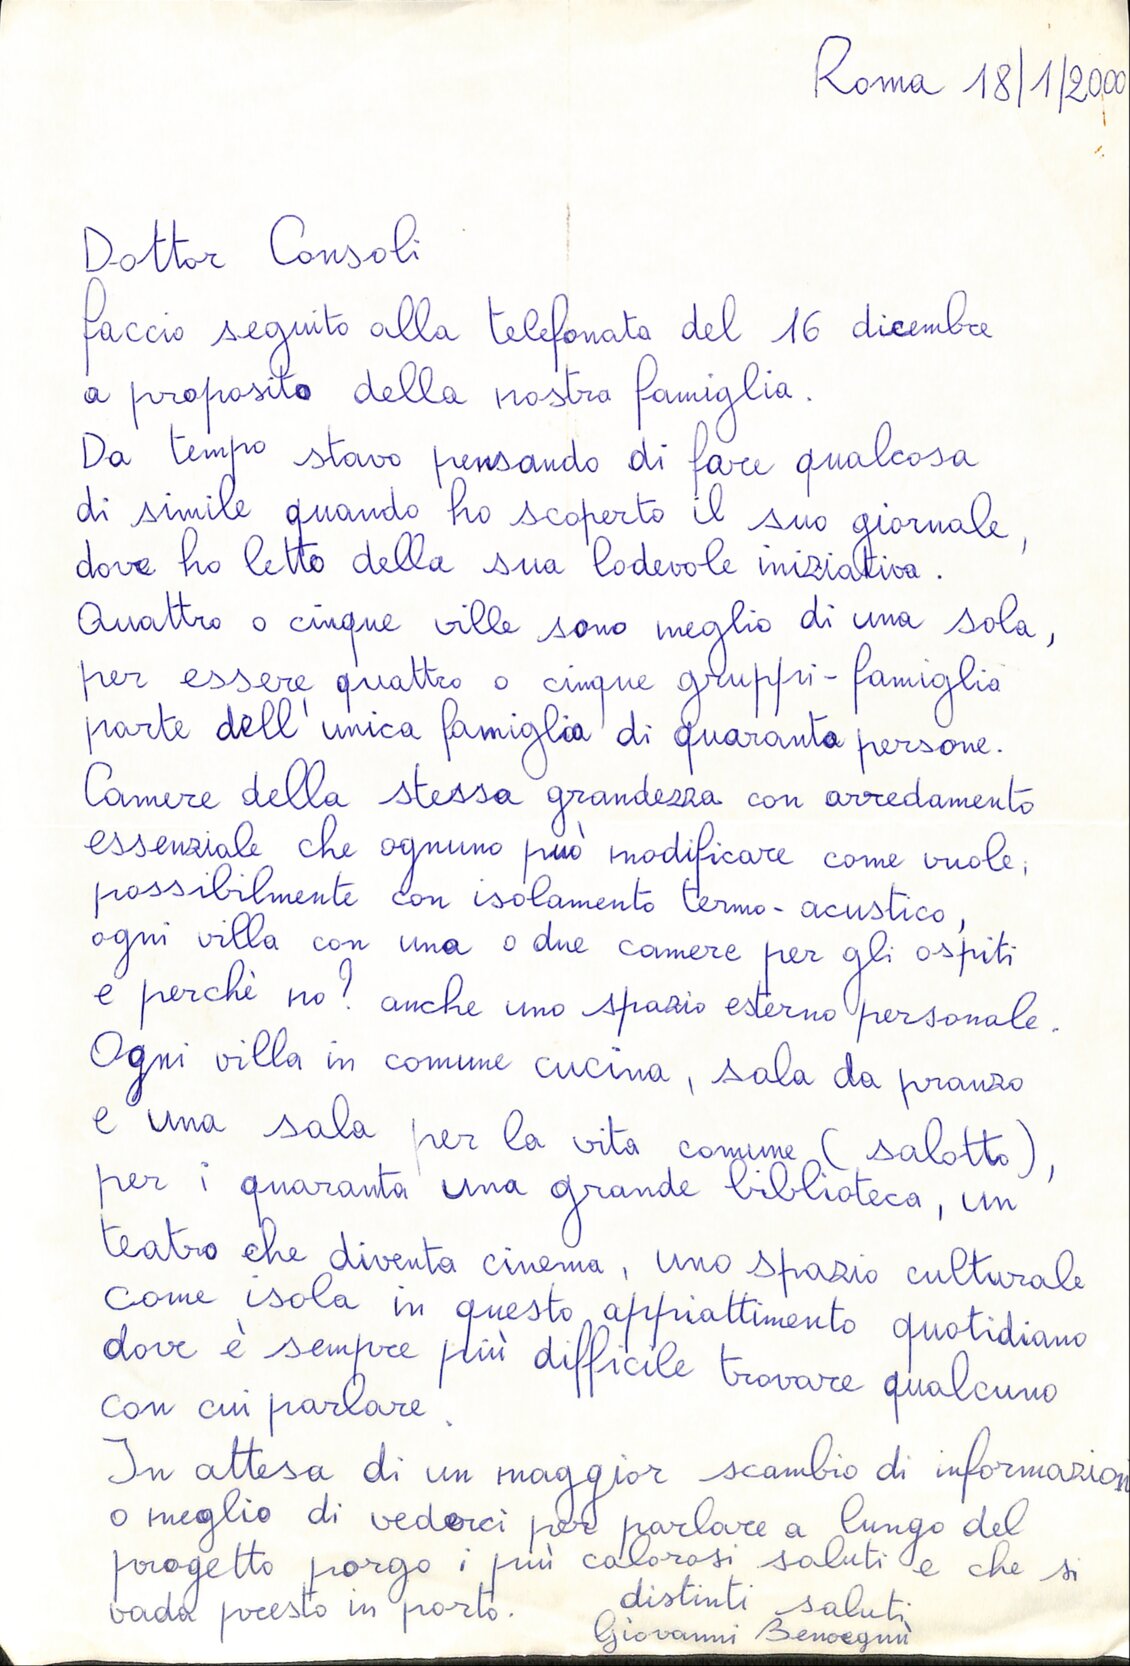 Roma 18/1/2000
Dottor Consoli
faccio seguito alla telefonata del 16 dicembre
a proposito della nostra famiglia.
Da tempo stavo pensando di fare qualcosa
di simile quando ho scoperto il suo giornale,
dove ho letto della sua lodevole iniziativa.
Quattro o cinque ville sono meglio di una sola,
per essere quattro o cinque gruppi-famiglia
parte dell'unica famiglia di quaranta persone.
Camere della stessa grandezza con arredamento
essenziale che ognuno può modificare come vuole,
possibilmente con isolamento termo-acustico,
ogni villa con una o due camere per gli ospiti
e perchè no? anche uno spazio esterno personale.
Ogni villa in comune cucina, sala da pranzo
e una sala per la vita comune (salotto),
per i quaranta una grande biblioteca, un
teatro che diventa cinema, uno spazio culturale
come isola in questo appiattimento quotidiano
dove è sempre più difficile trovare qualcuno
con cui parlare.
In attesa di un maggior scambio di informazioni
o meglio di vederci per parlare a lungo del
progetto porgo i più calorosi saluti e che si
vada presto in porto. distinti saluti
Giovanni